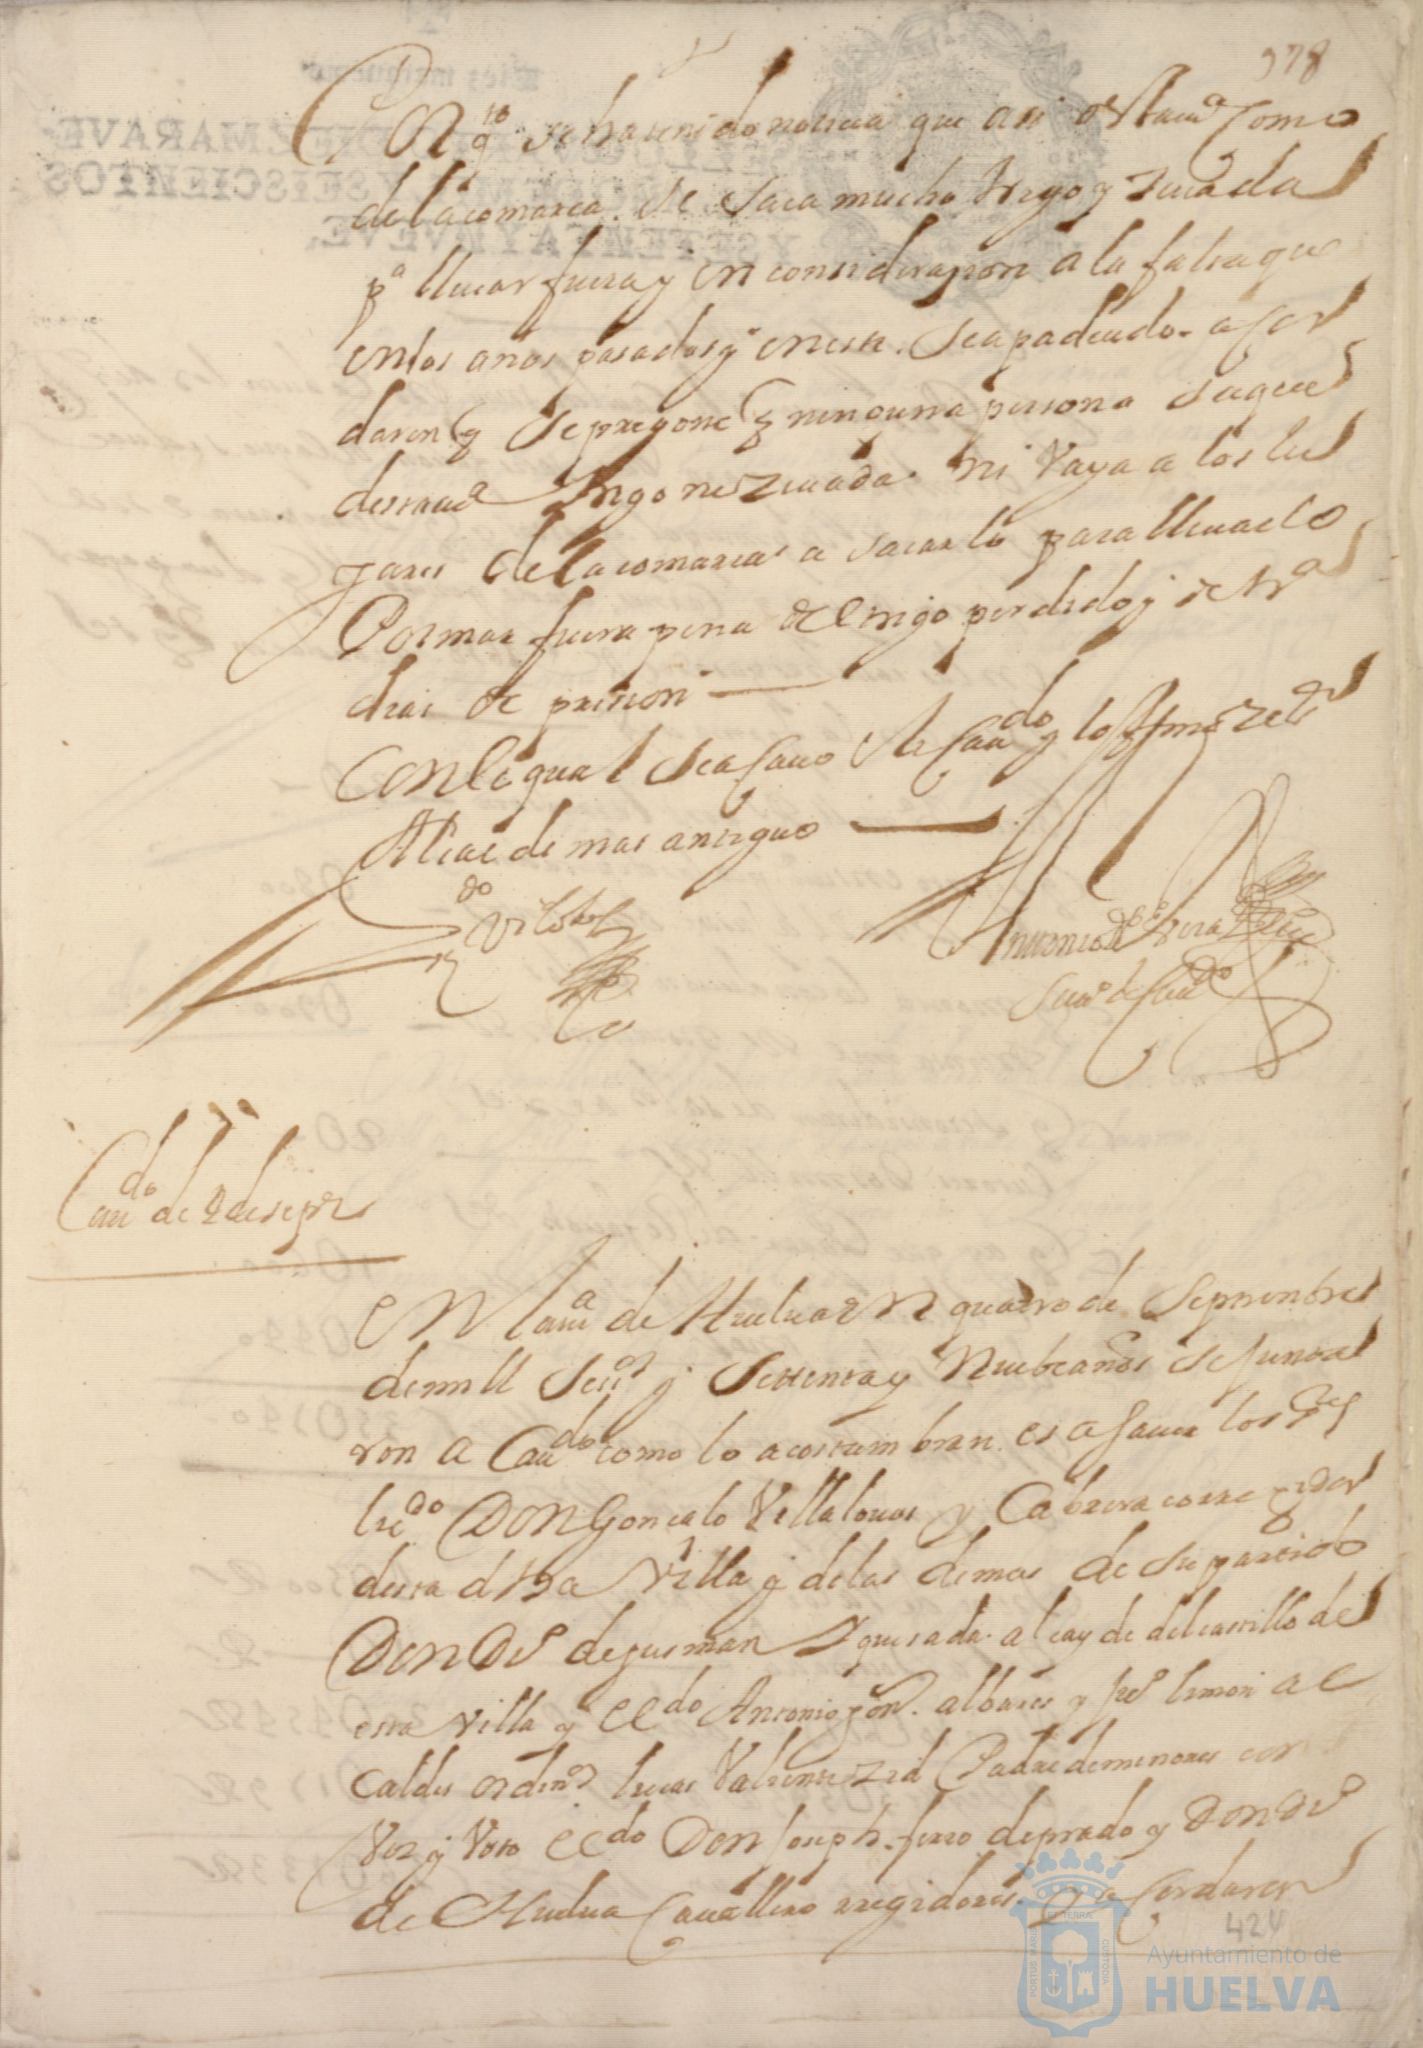 378
En q.to se ha tenido noticia que asi desta v.a como
de la comarca. se saca mucho trigo y zeuada
p.a lleuar fuera y en consideraçion a la falta que
en los años pasados y en este. se a padeçido. acor
daron q se pregone q ninguna persona saque
desta u.a trigo ni zeuada. ni vaya a los lu
gares de la comarca a sacarlo para lleuarlo
Por mar fuera pena del trigo perdido y de
dias de prision
Con lo qual se acauo este cau.do y lo firmo
Alcalde mas antiguo
Antonio de
Scriu.o de cau.do
Cau.do de 4 de sepre
En la u.a de Huelua en quatro de Septienbre
de mill seis.os y settenta y Nuebe años se junta
ron a Cau.do como lo acostumbran. es a sauer los S.res
liz.do Don Gonçalo Villalouos y Cabrera corregidor
desta dha Villa y de las demas de su partido
Don D.o de gusman y quesada. alcayde del castillo de
esta villa y el l.do Antonio gon. albares y fr.co limon al
caldes ordin.os lucas Valiente zid Padre de menores con
Voz y Voto el l.do Don Joseph. ferro de prado y Don D.o
de Huelua Cauallero rregidores. y acordaron
424
Ayuntamiento de
HUELVA